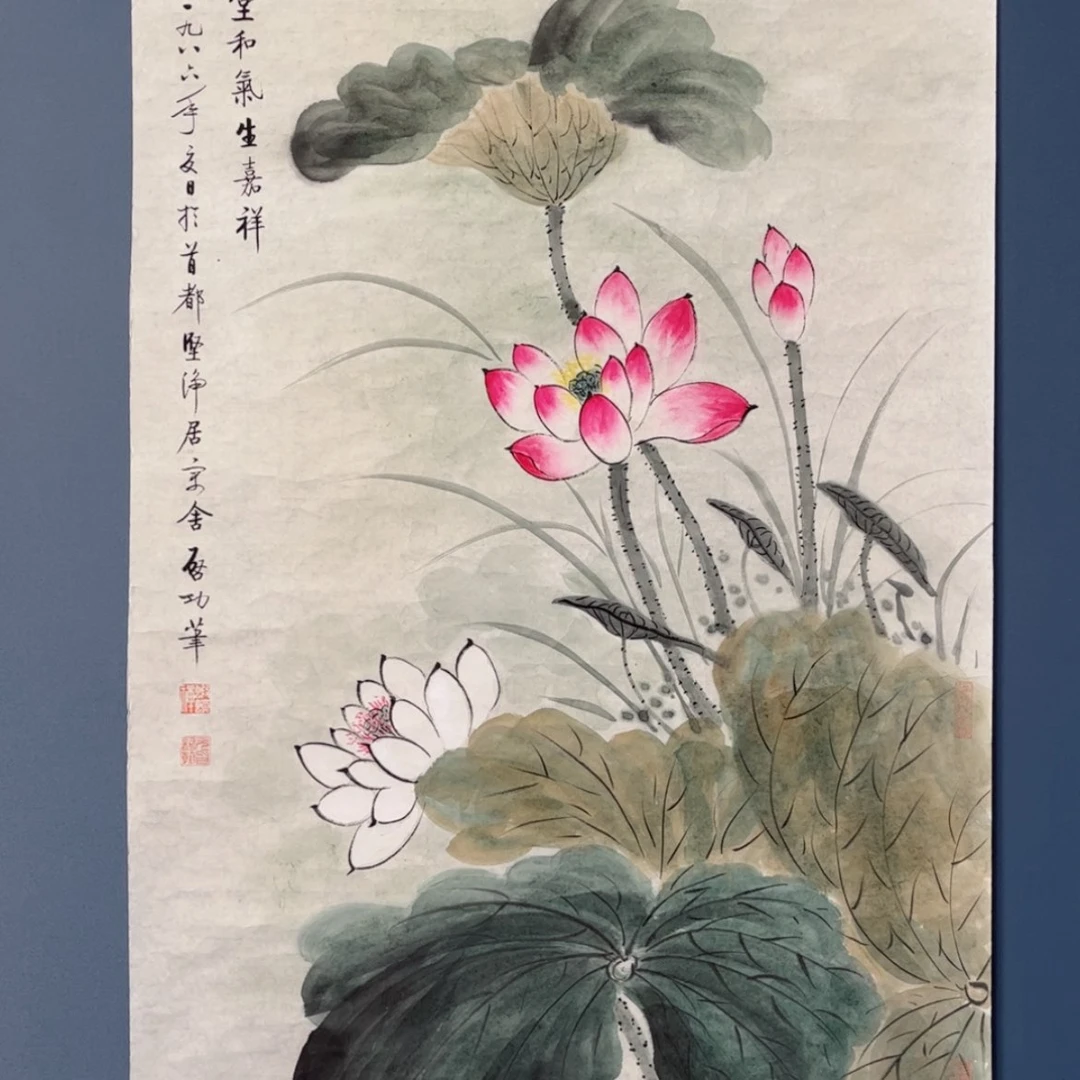 堂和氣生嘉祥
一九八六年夏日於首都堅净居宋舍啓功筆